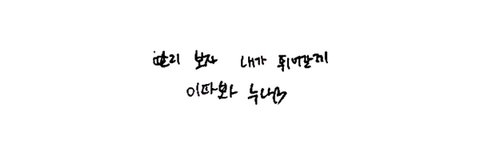 빨리 보자 내가 뛰어갈게
이따봐 누나